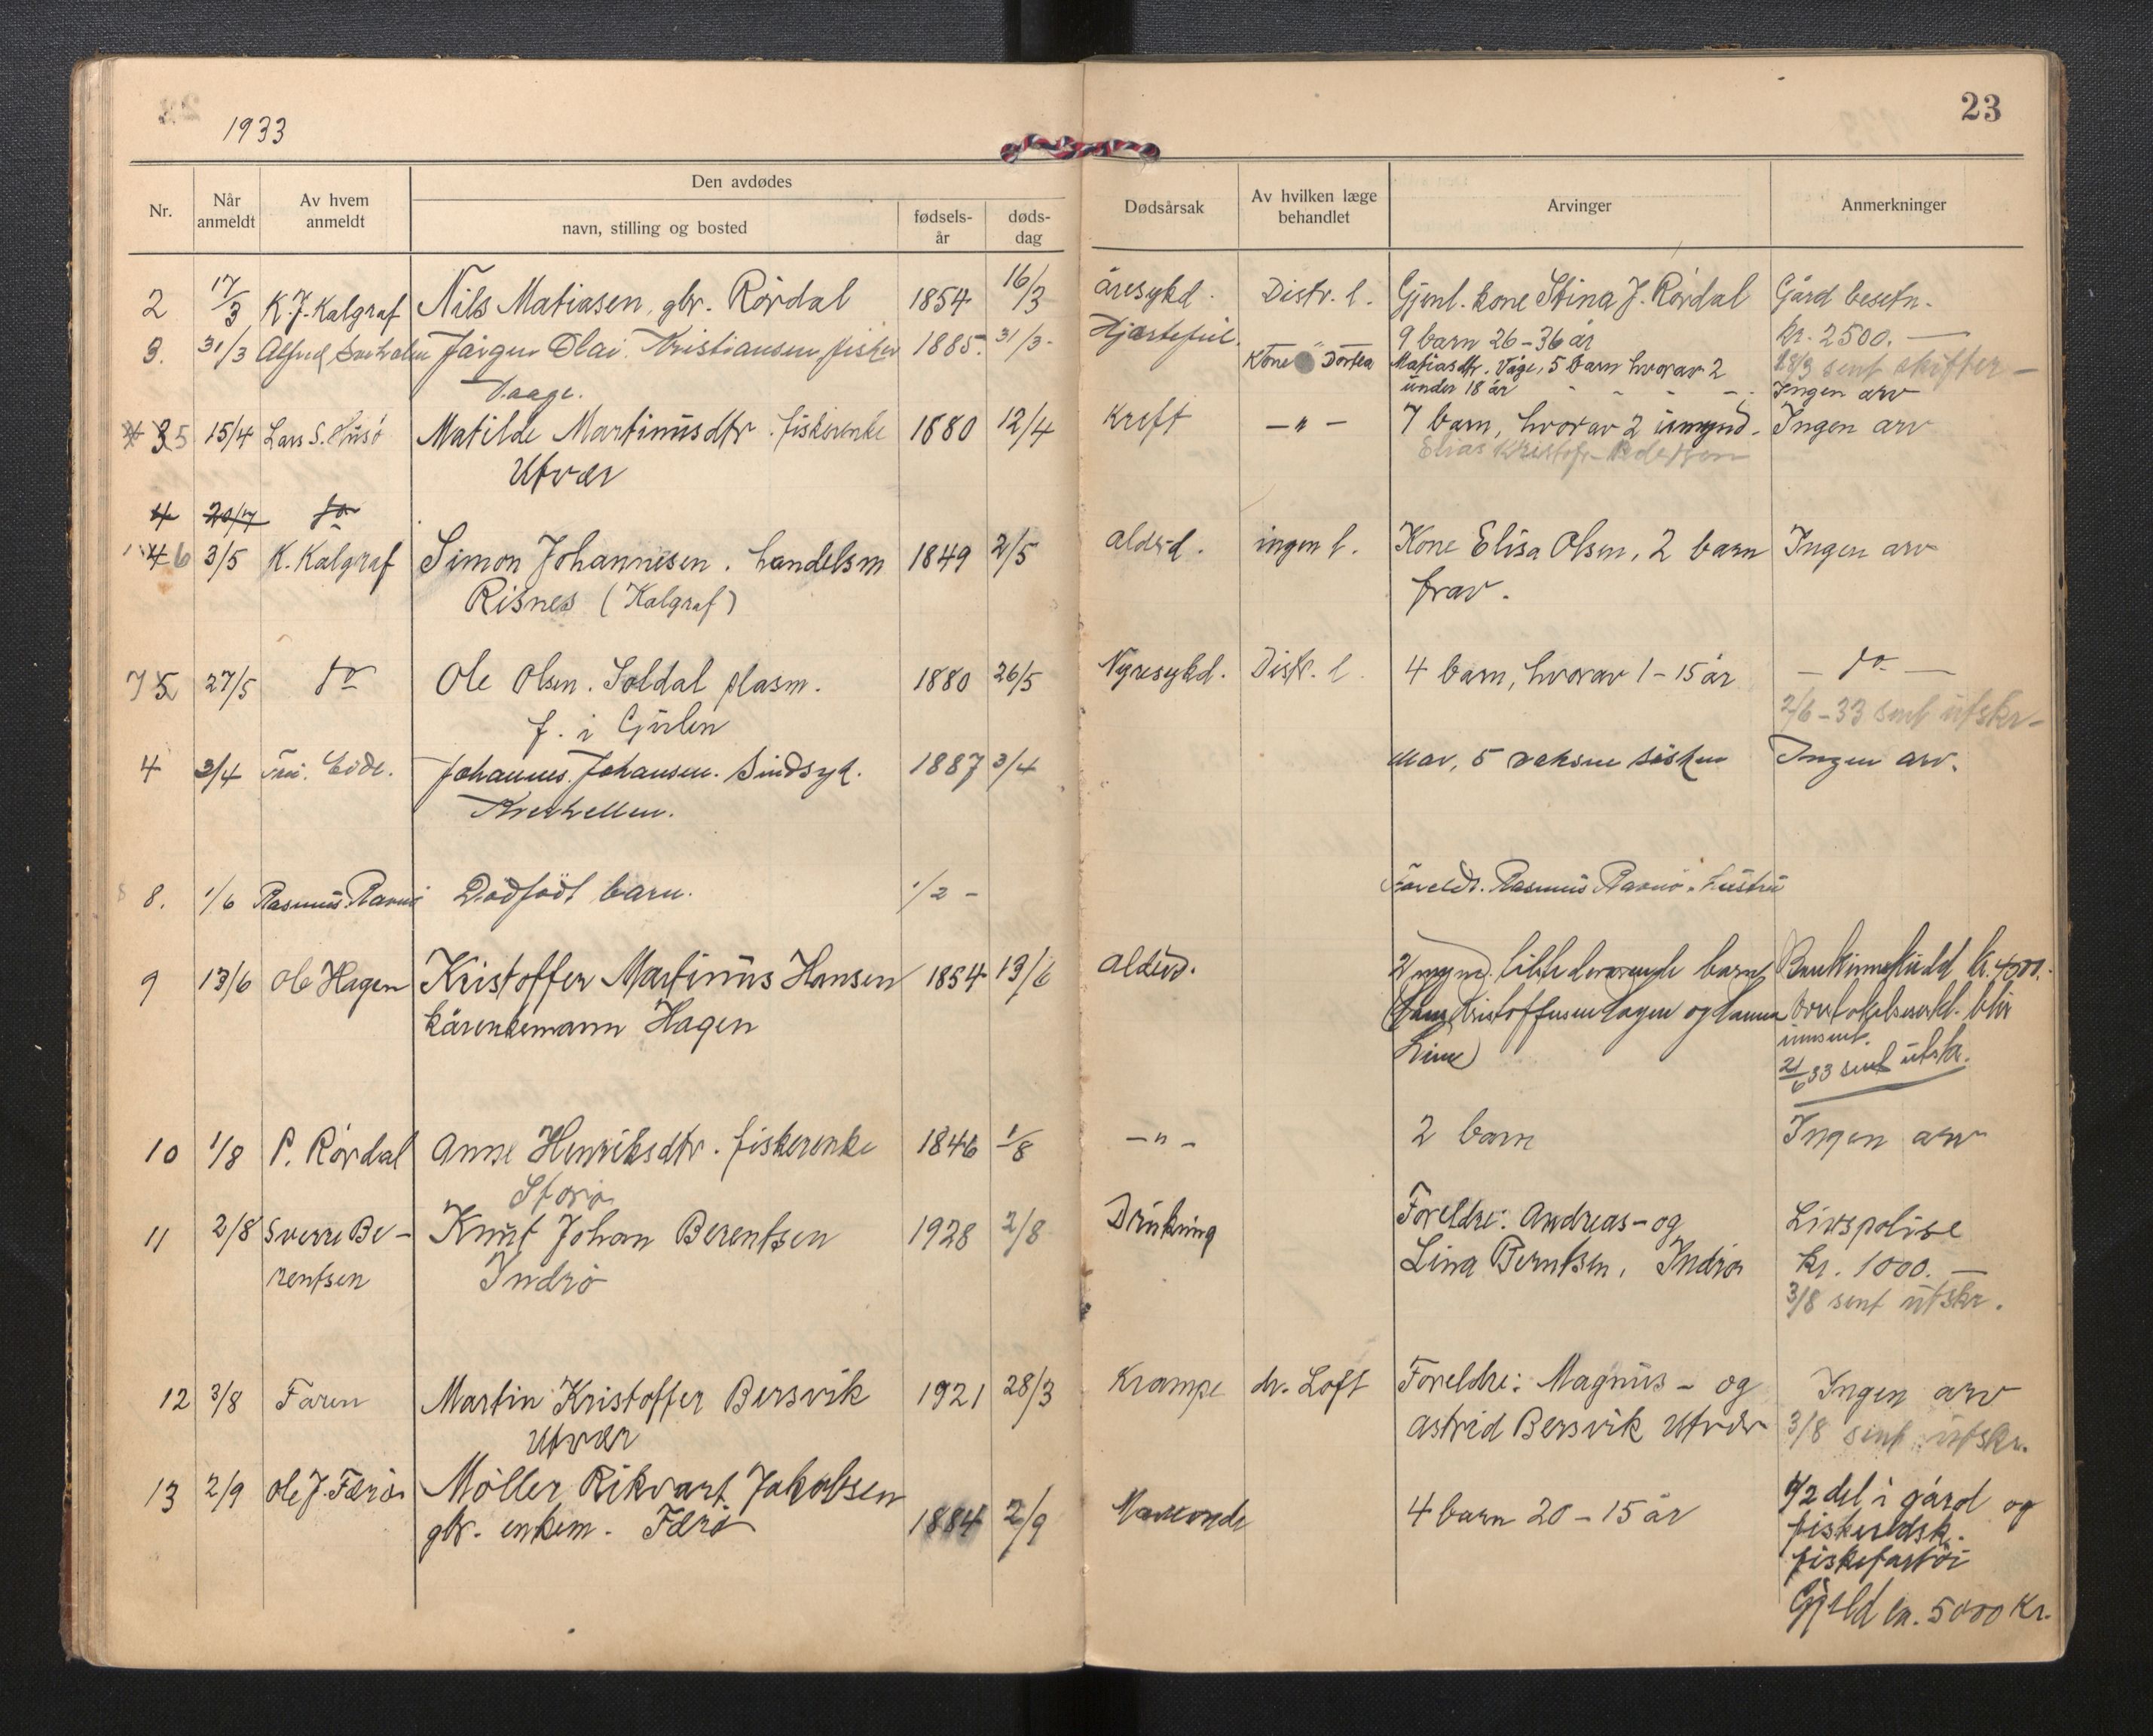 1933
23
Nr.
Når anmeldt
Av hvem anmeldt
Den avdødes
navn, stilling og bosted
fødsels-år
døds-dag
Dødsårsak
Av hvilken læge behandlet
Arvinger
Anmerkninger
2 17/3 K.J. Kalgraf Nils Matiasen, gbr. Rørdal 1854 16/3 åresykd. Distr. l. Gjenl. kone Stina J. Rørdal Gård besetn.
9 barn 26-36 år kr. 2500.—
3. 31/3 Alfred Jørgen Olai Kristiansen fisker 1885. 31/3- Hjertefeil. Kone Dortea Matiasdtr. Våge, 5 barn hvorav 2 18/3 sent skifter-
Vaage. under 18 år Ingen arv
35 15/4 Lars S. Husø Matilde Martinusdtr. fiskerenke 1880 12/4 Kreft -"- 7 barn, hvorav 2 umynd. Ingen arv
Utvær Elias Kristofr. Pedersen
4 20/4 do
46 3/5 K. Kalgraf Simon Johannesen. handelsm 1849 2/5 alderd. ingen l. Kone Elisa Olsen, 2 barn Ingen arv
Risnes (Kalgraf) frav.
75 27/5 do Ole Olsen. Soldal plasm. 1880 26/5 Nyresykd. Distr. l. 4 barn, hvorav 1-15 år - do. -
f. i Gulen 2/6-33 sent utskr-
4 3/4 Eide. Johannes Johansen. Sindsyk. 1887 3/4 Mor, 5 voksne søsken Ingen arv.
8. 1/6 Rasmus Ravnø Dødfødt barn. 1/2 - Foreldr. Rasmus Ravnø. hustru
9 13/6 Ole Hagen Kristoffer Martinus Hansen 1854 13/6 alderd. 2 barn
kårenkemann Hagen Kristoffersen Hagen og Hanna blir
innsent.
21/6 33 sent utskr.
10 1/8 P. Rørdal Anne Henriksdtr. fiskerenke 1846 1/8 -"- 2 barn Ingen arv
Storø
11 2/8 Sverre Be- Knut Johan Berentsen 1928 2/8 Drukning Foreldre: Andreas- og Livspolise
rentsen Indrø Lina Berntsen, Indrø kr. 1000.—
3/8 sent utskr.
12 3/8 Faren Martin Kristoffer Bersvik 1921 28/3 Krampe dr. Loft Foreldre: Magnus- og Ingen arv
Utvær Astrid Bersvik Utvær 3/8 sent utskr.
13 2/9 Ole J. Færø Møller Rikvart Jakobsen 4 barn 20-15 år 1/2 del i gård og
gbr. enkem. Færø 1884 2/9 fiskeredsk.
fiskefartøi
Gjeld ca. 5000 Kr.